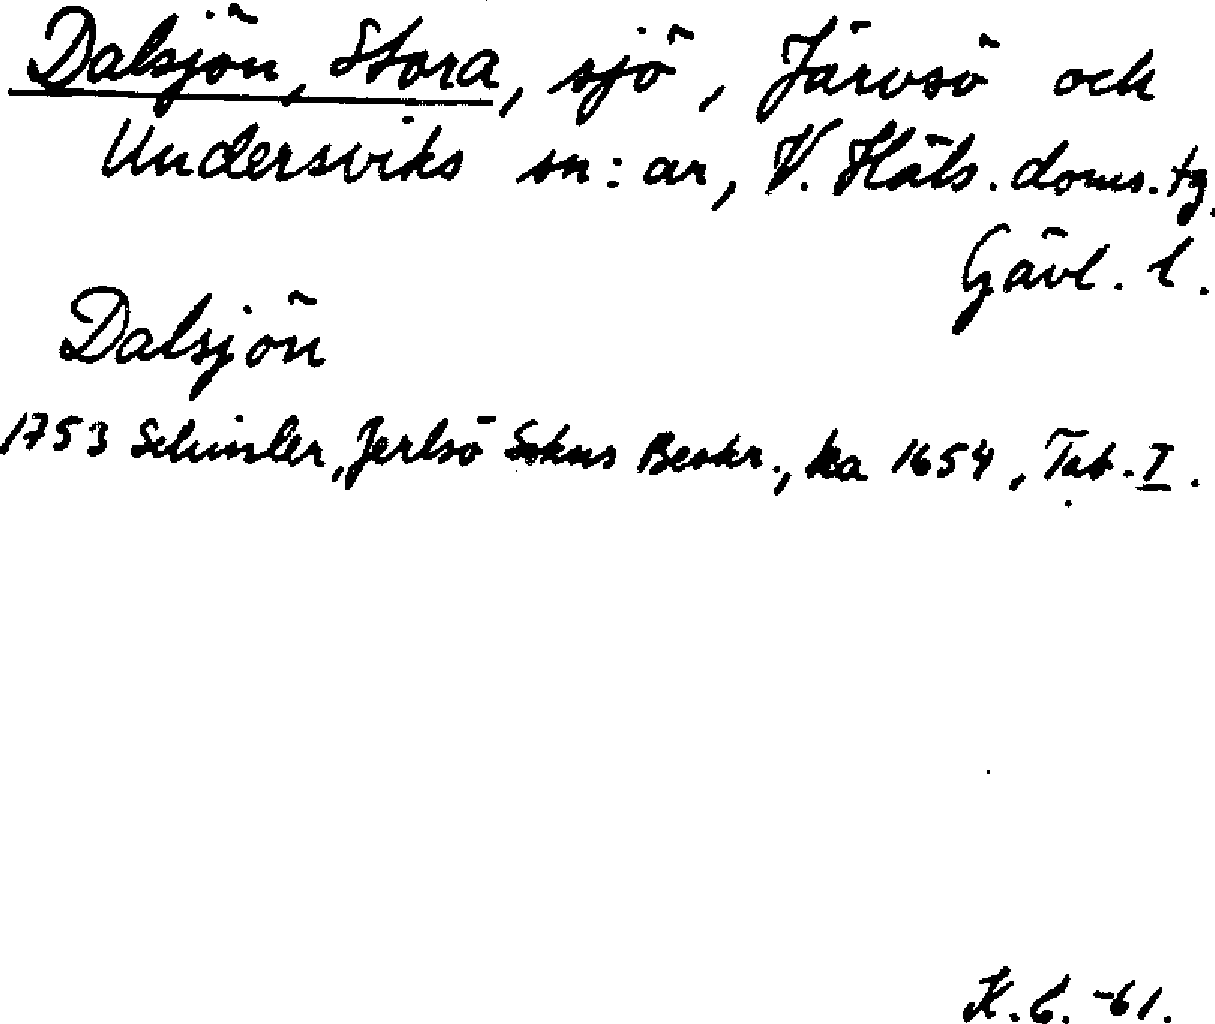 Dalsjön, Stora, sjö, Järvsö och
Undersviks sn:ar, V. Häls. doms. tg.
Gävl. l.
Dalsjön
1753 Schissler, Jerlsö Sokns Beskr., ka 1654, Tab. I.
K. C. -61.